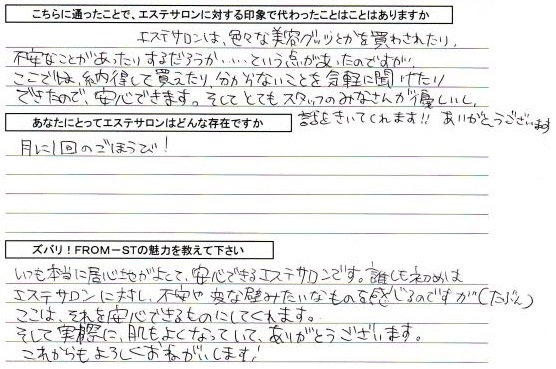 こちらに通ったことで、エステサロンに対する印象で代わったことはことはありますか
エステサロンは、色々な美容グッツとかを買わされたり、
不安なことがあったりするだろうか・・・・という点があったのですが、
ここでは、納得して買えたり、分からないことを気軽に聞けたり
できたので、安心できます。そしてとてもスタッフのみなさんが優しいし、
話をきいてくれます!! ありがとうございます
あなたにとってエステサロンはどんな存在ですか
月に1回のごほうび!
ズバリ!FROM−STの魅力を教えて下さい
いつも本当に居心地がよくて、安心できるエステサロンです。誰しも初めは
エステサロンに対し、不安や変な壁みたいなものを感じるのですが(たぶん)
ここは、それを安心できるものにしてくれます。
そして実際に、肌もよくなっていて、ありがとうございます。
これからもよろしくおねがいします!